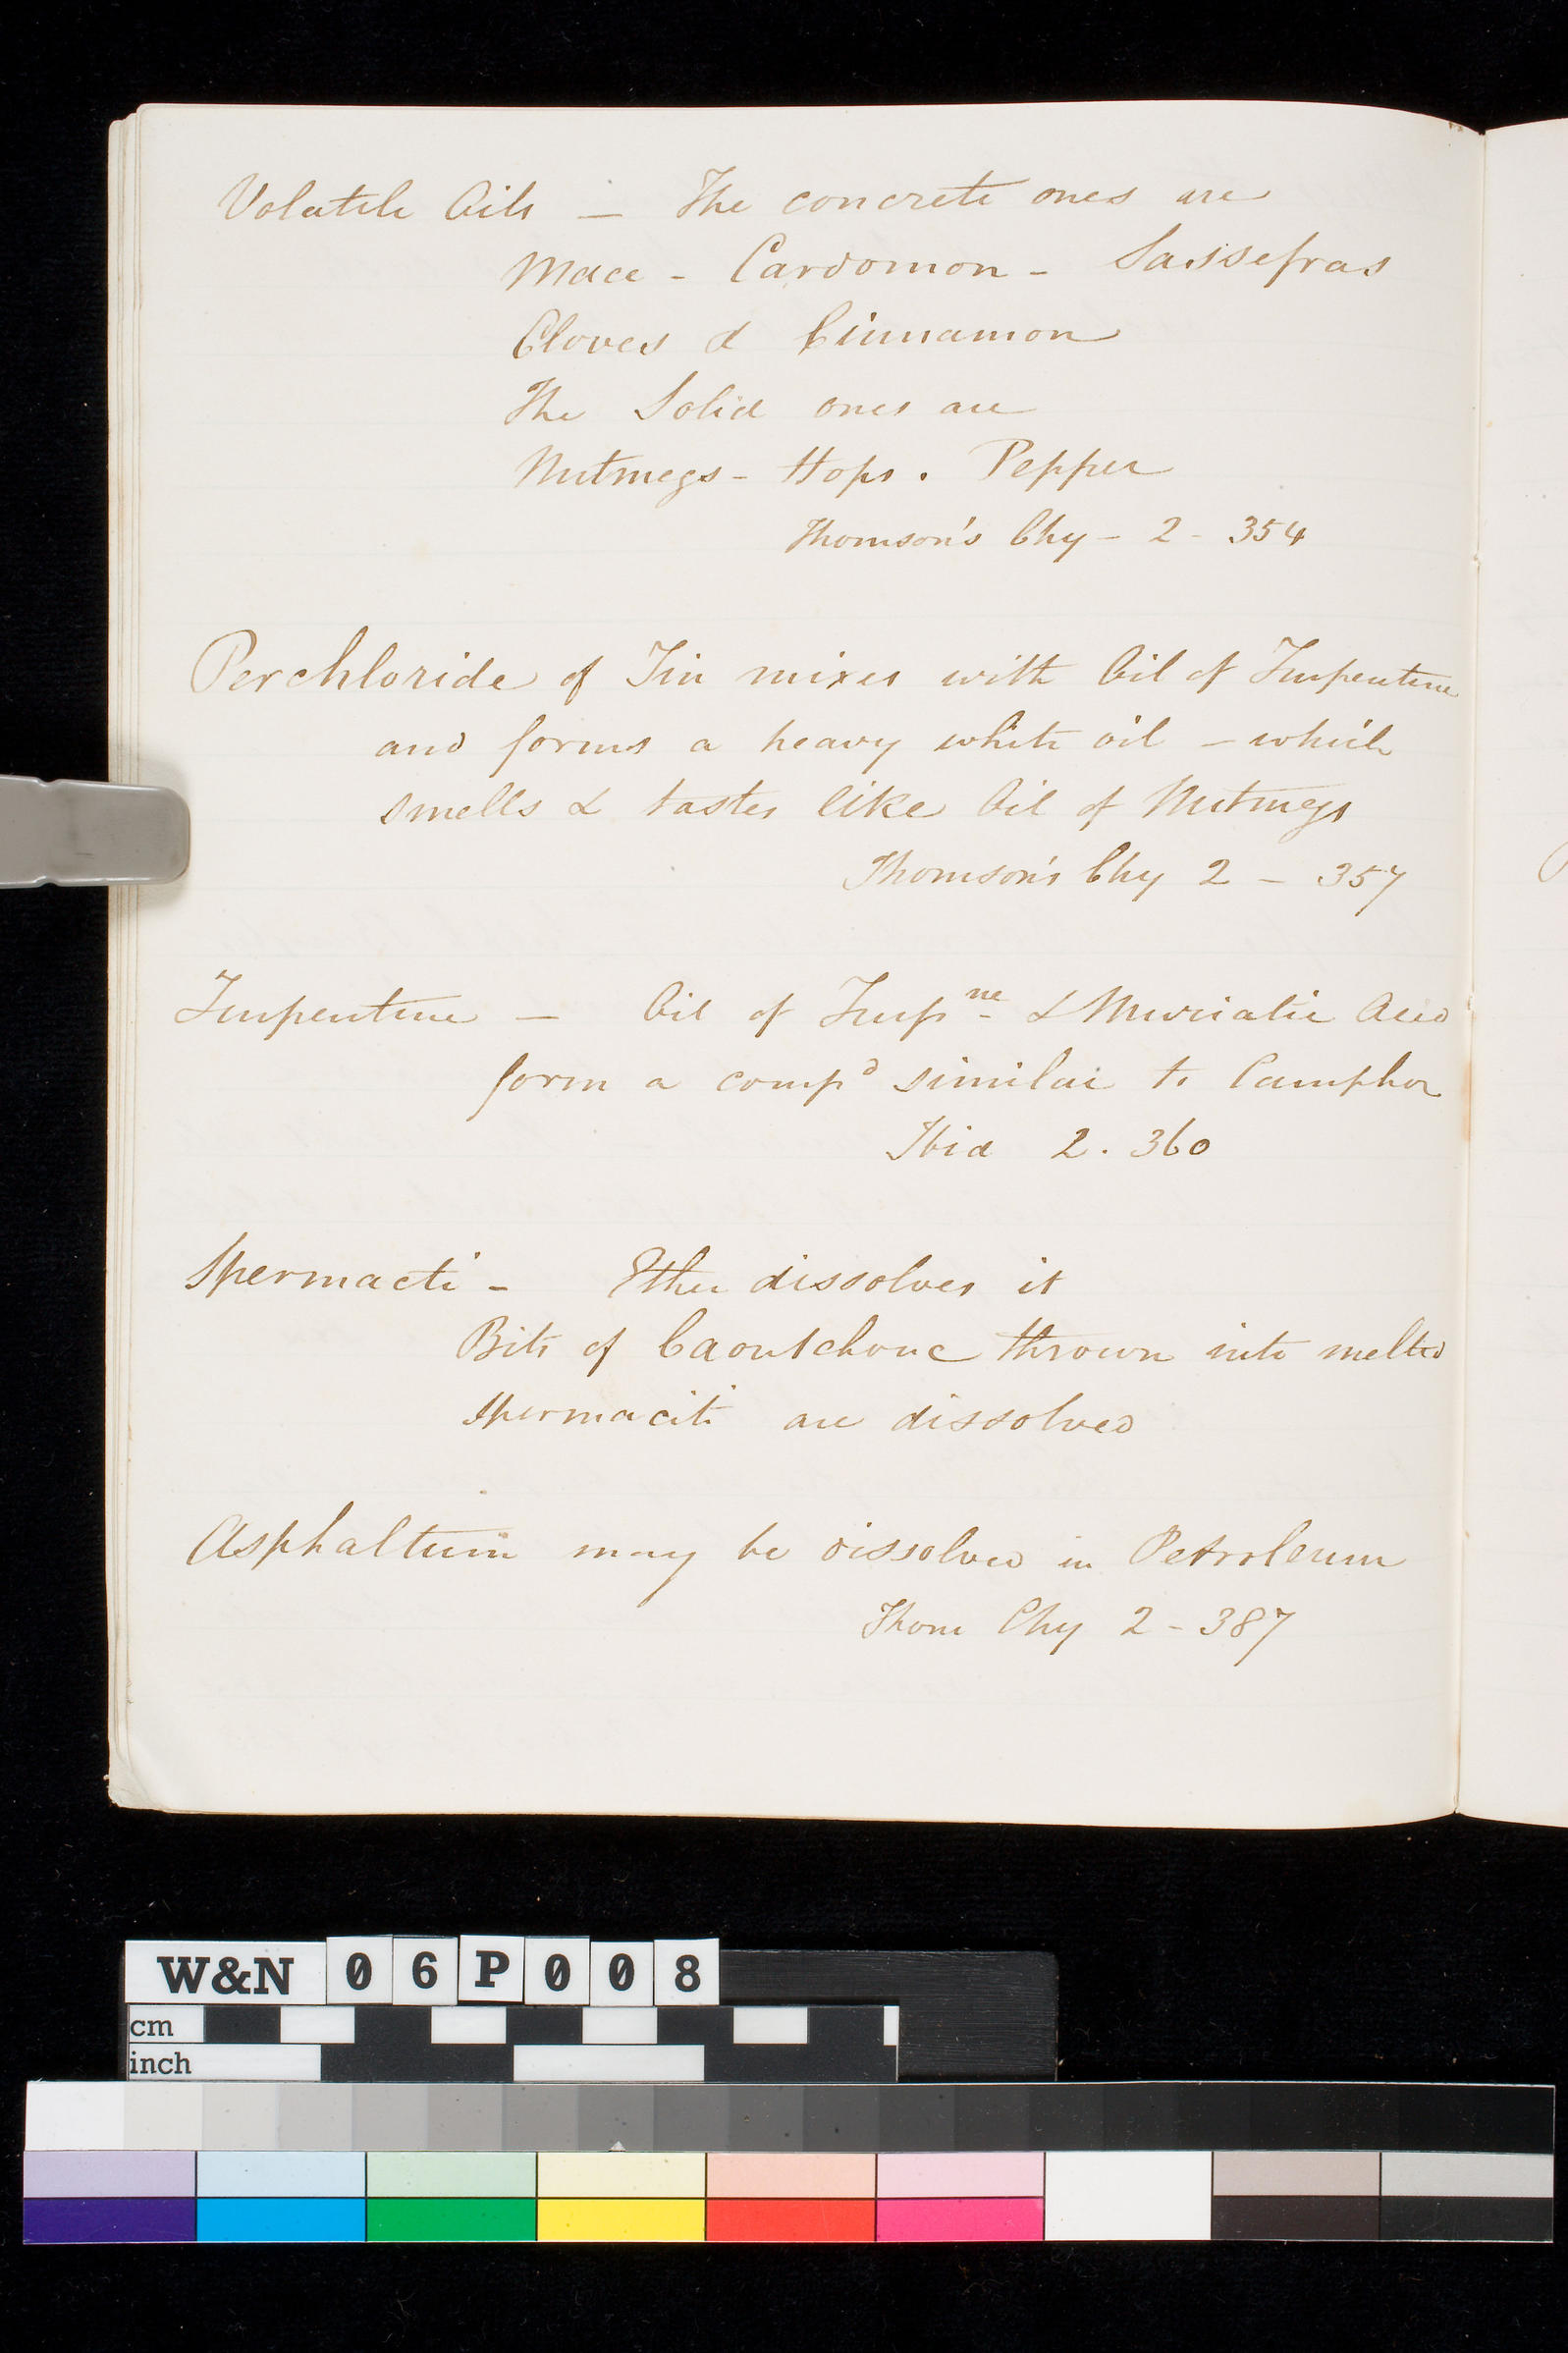 Volatile Oils — The concrete ones are
Mace - Cardomon - Sassefras
Cloves & Cinnamon
The Solid ones are
Nutmegs - Hops . Pepper
Thomson's Chy - 2 - 354
Perchloride of Tin mixes with Oil of Turpentine
and forms a heavy white oil - which
smells & tastes like Oil of Nutmegs
Thomson's Chy 2 - 357
Turpentine — Oil of Turpne & Muriatic Acid
form a compd similar to Camphor
Ibid 2. 360
Spermaceti - Ether dissolves it
Bits of Caoutchouc thrown into melted
spermaceti are dissolved
Asphaltum may be dissolved in Petroleum
Thom Chy 2 - 387
W&N 06P008
cm
inch